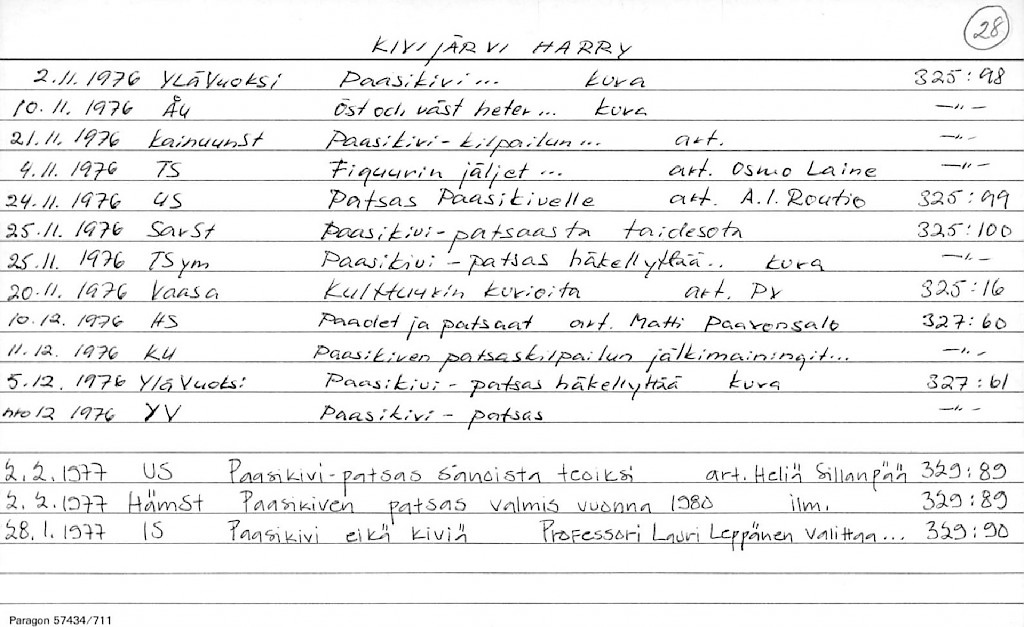 28
KIVIJÄRVI HARRY
2.11.1976 YLÄVuoksi Paasikivi... kuva 325:98
10.11.1976 ÅU Öst och väst heter... kuva —"—
21.11.1976 KainuunSt Paasikivi-kilpailun... art. —"—
4.11.1976 TS Figuurin jäljet... art. Osmo Laine —"—
24.11.1976 US Patsas Paasikivelle art. A.I. Routio 325:99
25.11.1976 SavSt Paasikivi-patsaasta taidesota 325:100
25.11. 1976 TSym Paasikivi-patsas häkellyttää.. kuva —"—
20.11.1976 Vaasa Kulttuurin kurioita art. PV 325:16
10.12.1976 HS Paadet ja patsaat art. Matti Paavonsalo 327:60
11.12.1976 KU Paasikiven patsaskilpailun jälkimainingit... —"—
5.12.1976 YläVuoksi Paasikivi-patsas häkellyttää kuva 327:61
nro 12 1976 YV Paasikivi-patsas —"—
2.2.1977 US Paasikivi-patsas sanoista teoiksi art. Heliä Sillanpää 329:89
2.2.1977 HämSt Paasikiven patsas valmis vuonna 1980 ilm. 329:89
28.1.1977 IS Paasikivi eikä kiviä Professori Lauri Leppänen valittaa... 329:90
Paragon 57434/711